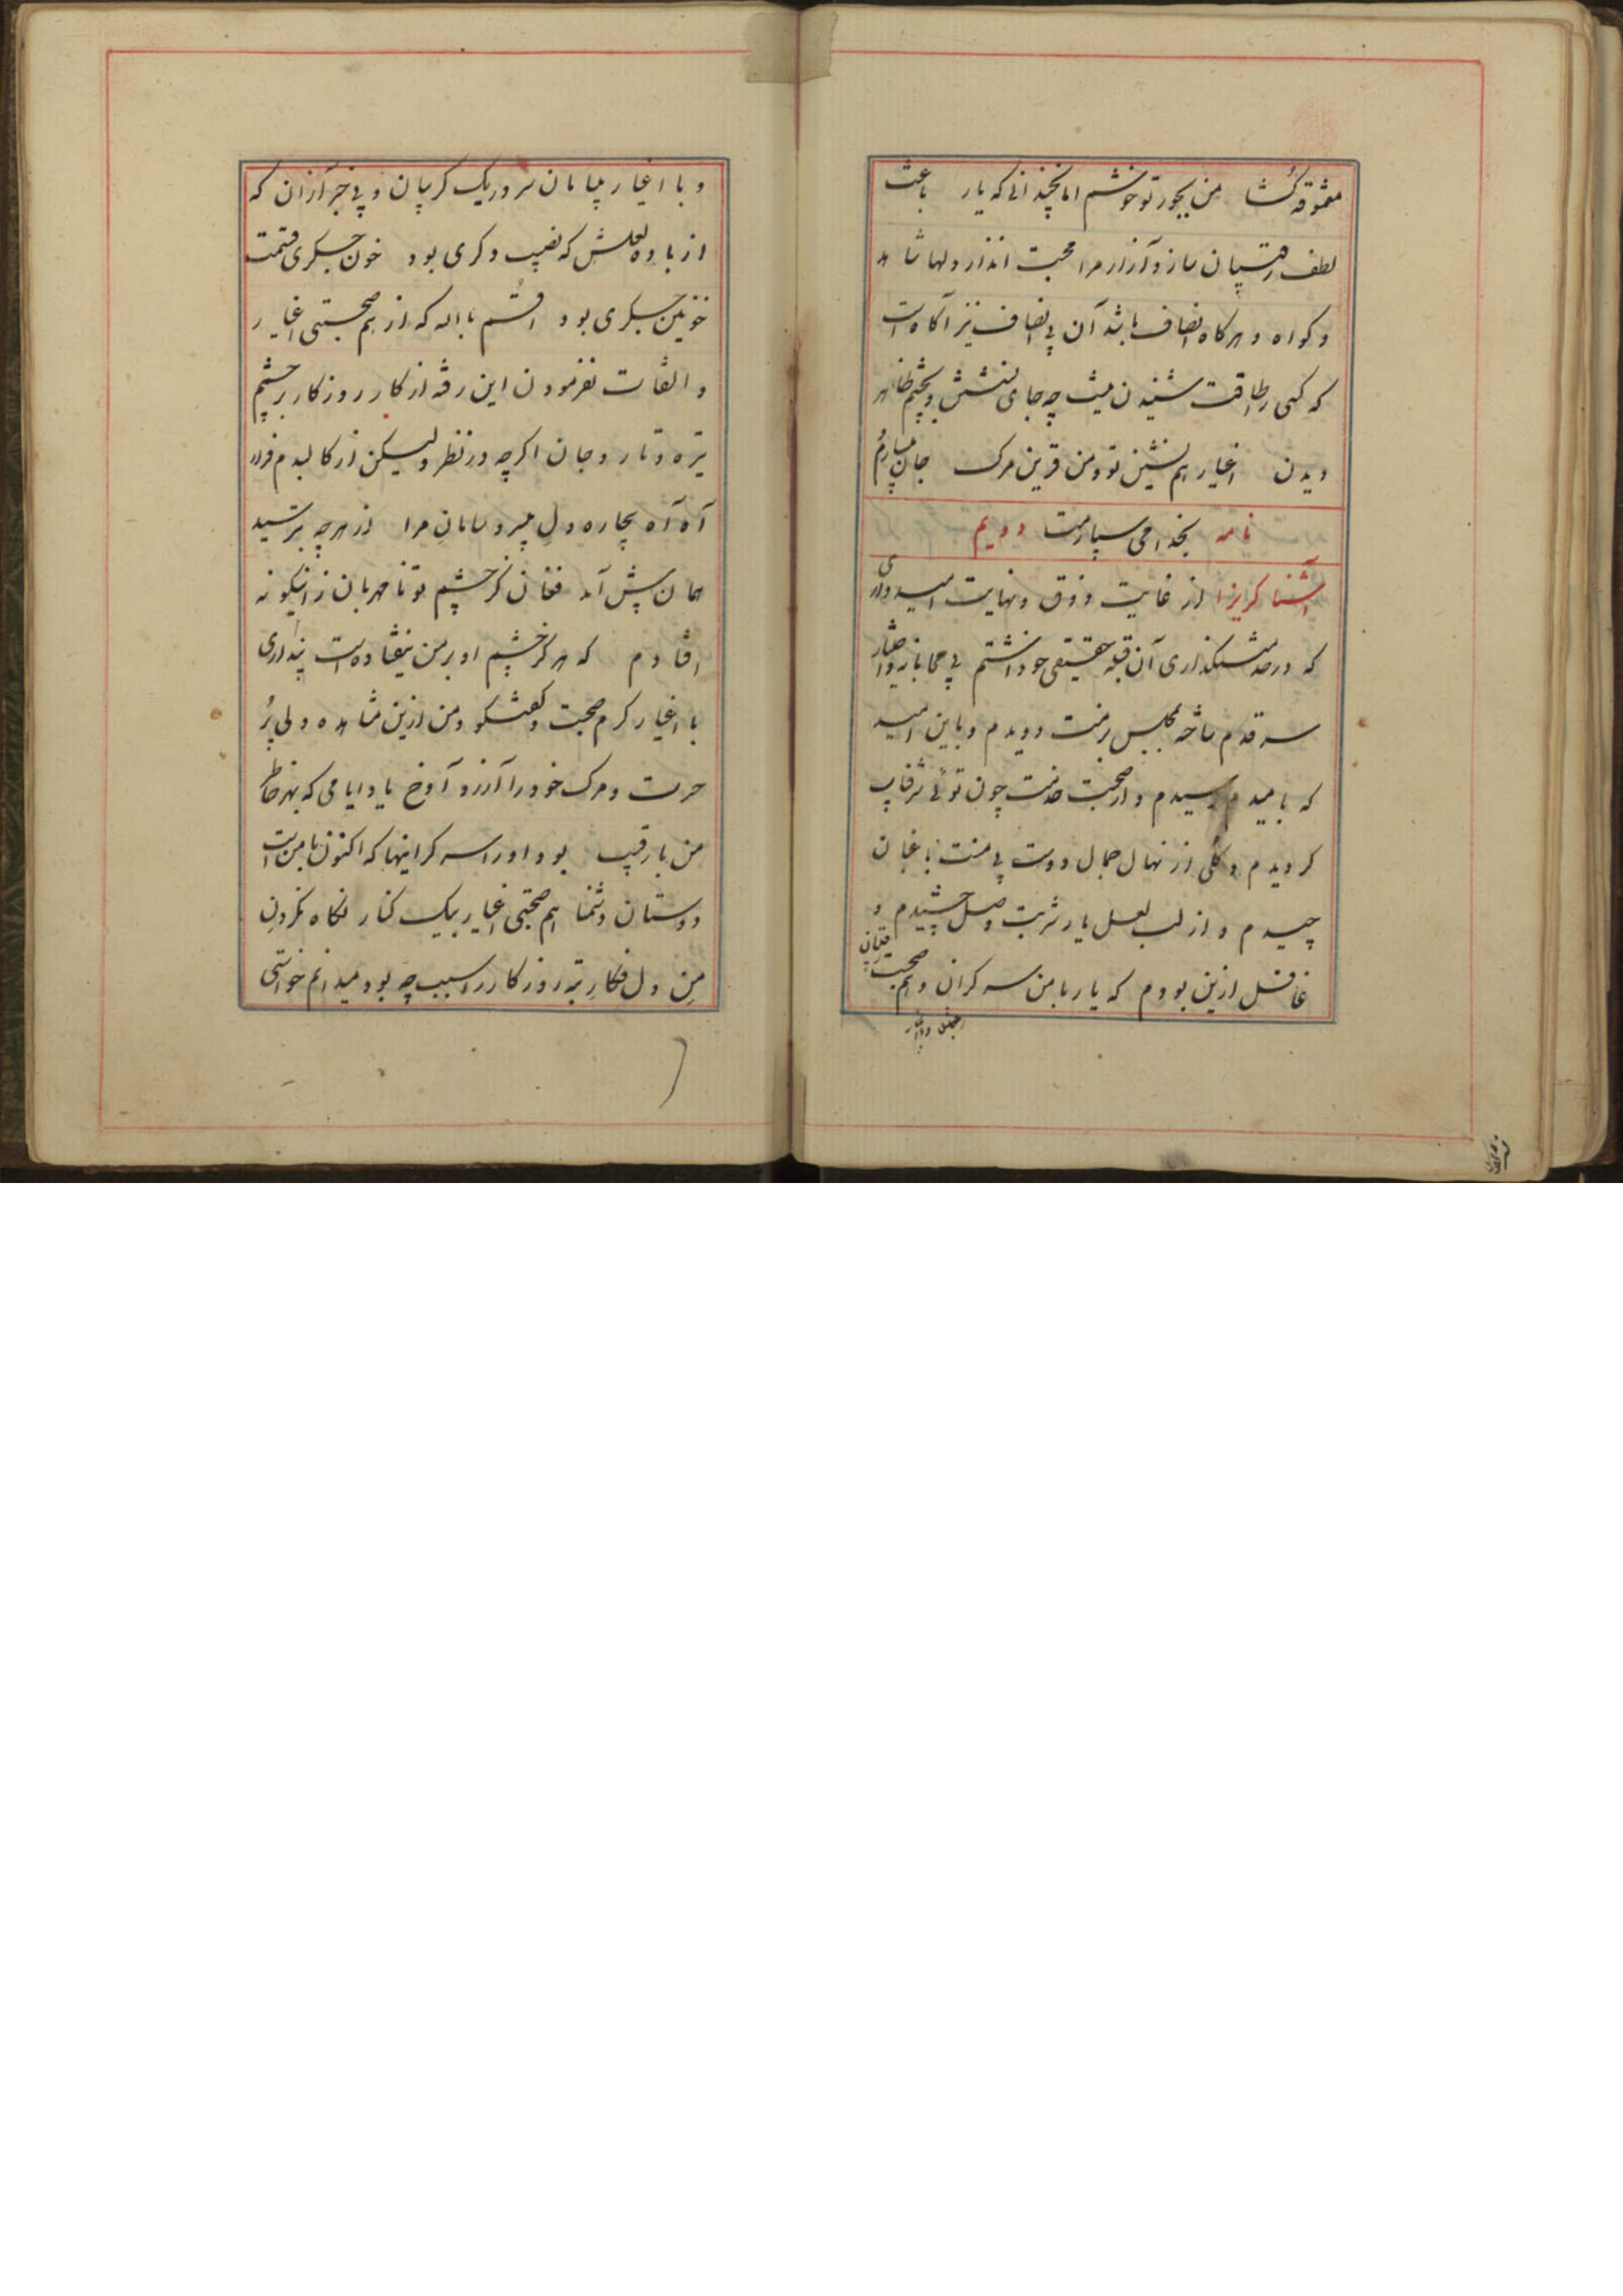 معشوقه کشا من بجور تو خوشم اما بخدائی که یار باعث
لطف رقیبان ساز و آزار مرا محبت انداز دلها شاهد
و کواه و هر کاه انصاف باشد آن بی انصاف نیز آکاه است
که کسی را طاقت شنیدن نیست چه جای نشستن و بچشم ظاهر
دیدن اغیار هم نشین تو و من قرین مرک جان سپارم
نامه بخدا می سپارمت دویم
آشنا کریزا از غایت ذوق و نهایت امیدواری
که در خدمتکذاری آن قبله حقیقی خود داشتم بی محابانه
سر قدم ساخته بمجلس بزمت دویدم و باین امید
که بامیدم رسیدم و از صحبت خدمت چون توئی شرفیاب
کردیدم و کلی از نهال جمال دوست بی منت باغبان
چیدم و از لب لعل یار شربت وصل چشیدم و
غافل ازین بودم که یار با من سر کران و هم صحبت رقیبان
و با اغیار بیابان سر در یک کریبان و بی خبر از آن که
از باده لعلش که نصیب دکری بود خون جکری قسمت
خونین جکری بود اقسم بالله که از هم صحبتی اغیار
و التفات نفرمودن این رفته از کار روزکار بر چشم
تیره و تار و جان اکر چه در نظر و لیکن از کالبدم فرار
آه آه بیچاره دل بی سر و سامان مرا از هر چه بترسید
همان پیش آمد فغان کز چشم تو نامهربان زانیکونه
افتادم که هرکز چشم او بر من نیفتاده است پنداری
با اغیار کرم صحبت و کفتکو و من ازین مشاهده دلی پر
حسرت و مرک خود را آرزو آوخ یاد ایامی که بهر خاطر
من با رقیب بود او را سر کرانیها که اکنون با من است
دوستان دشمنا هم صحبتی اغیار بیک کنار نکاه نکردن
من دل فکار تبه روزکار را سبب چه بود میدانم خواستی